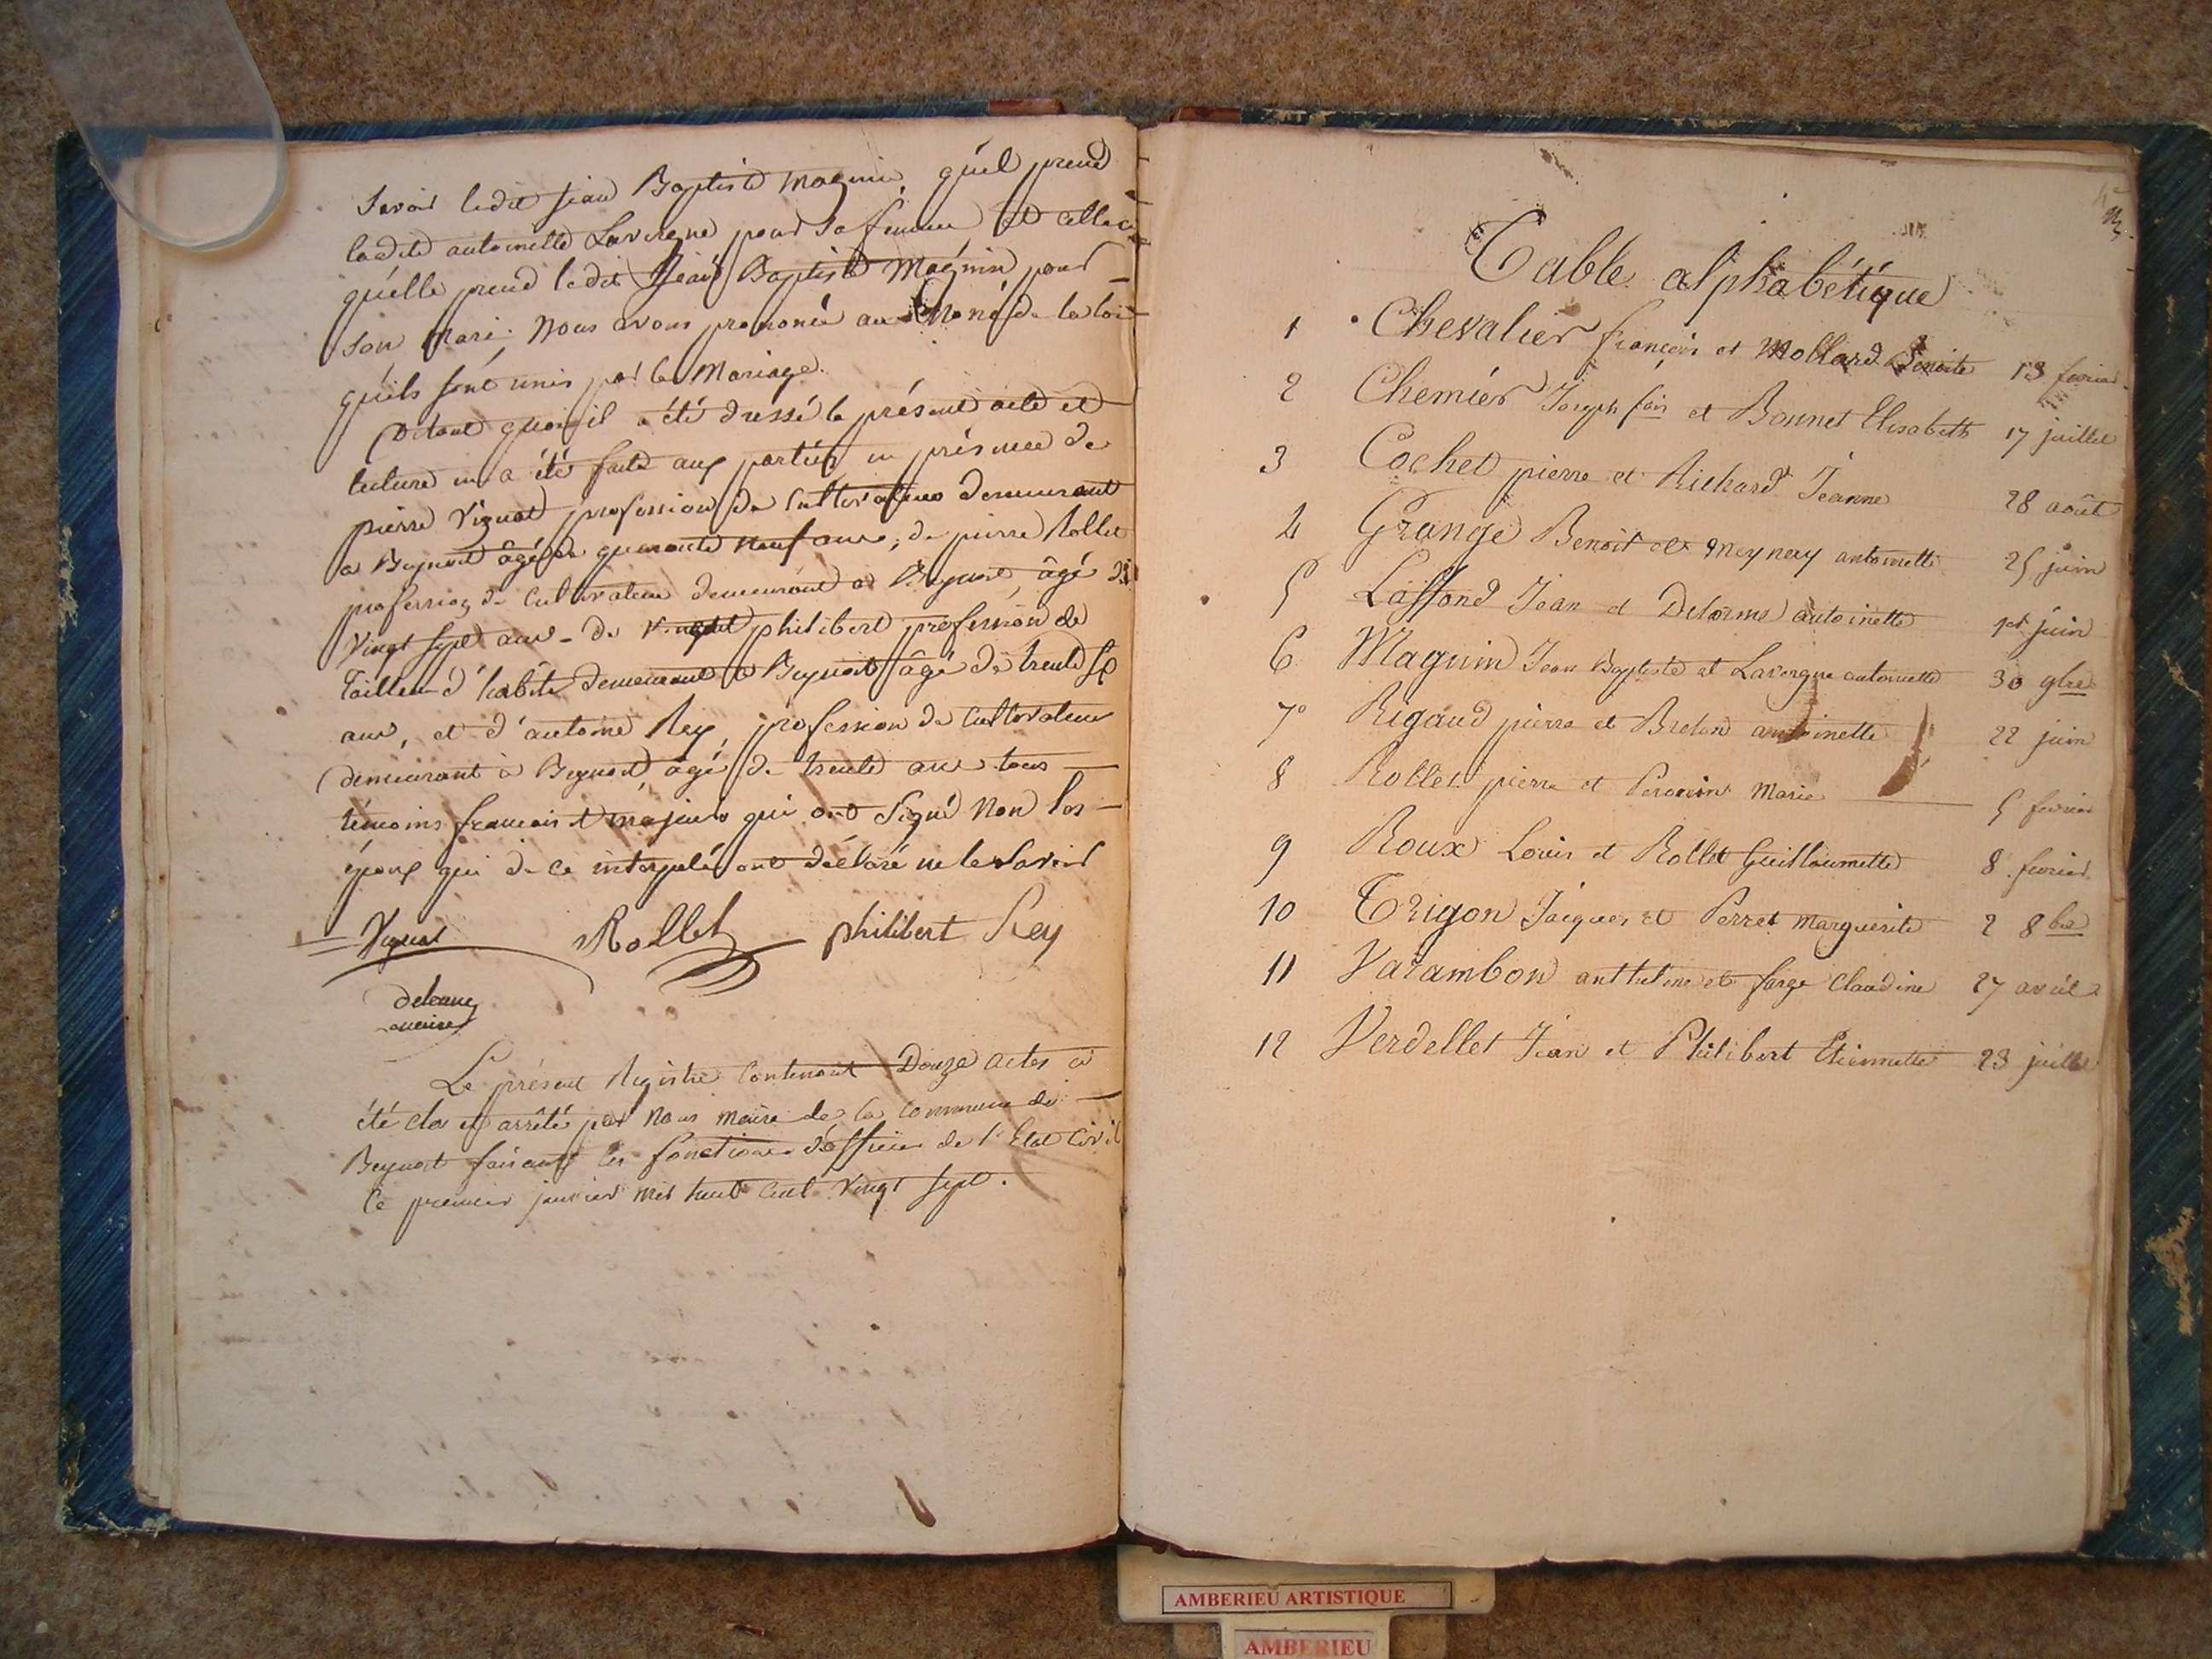 Savoir ledit jean Baptiste Magnin, qu'il prend
ladite antoinette Lavergne pour sa femme et celle ci
qu'elle prend ledit Jean Baptiste Magnin pour
son Mari; Nous avons prononcé au Nom de la loi
qu'ils sont unis par le Mariage.
Detout quoi il a été dressé le présent acte et
lecture en a été faite aux parties en présence de
pierre Vignat profession de Cultivateur demeurant
a Beynost âgé de quarante neuf ans, de pierre Rollet
profession de Cultivateur demeurant a Beynost, âgé de
Vingt sept ans - de philibert profession de
Tailleur d'habits demeurant a Beynost âgé de trente
ans, et d'antoine Rey, profession de Cultivateur
demeurant à Beynost, âgé de trente ans tous
témoins francais et majeurs qui ont Signé Non les
époux qui de ce interpelé ont déclaré ne le Savoir
Vignat Rollet philibert Rey
maire
Le présent Registre Contenant Douze actes a
été clos et arrêté par Nous maire de la Commune de
Beynost faisant les fonctions d'officier de l'Etat Civil
le premier janvier mil huit Cent Vingt Sept.
Table alphabétique
1 Chevalier françois et Mollard Benoite 13 fevrier
2 Chemier Joseph fois et Bonnet Elisabeth 17 juillet
3 Cochet pierre et Richard Jeanne 28 août
4 Grange Benoit et Meynery antoinette 25 juin
5 Laffond Jean et Delorme antoinette 1er juin
6 Magnin Jean Baptiste et Lavergne antoinette 30 9bre
7° Rigaud pierre et Breton antoinette 22 juin
8 Rollet pierre et Marie 5 fevrier
9 Roux Louis et Rollet Guillaumette 8 fevrier
10 Trigon Jacques et Perret Marguerite 2 8bre
11 Varambon anthelme et farge Claudine 27 avril
12 Verdellet Jean et Philibert Etiennette 23 juillet
AMBERIEU ARTISTIQUE
AMBERIEU